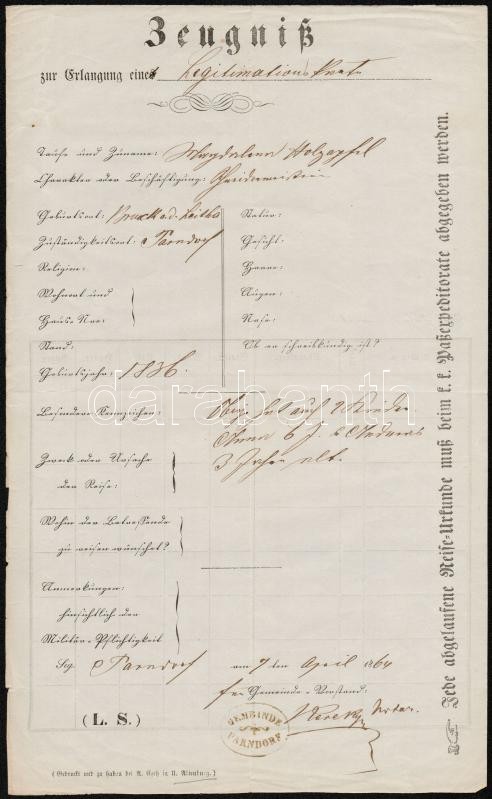 Zeugniß
zur Erlangung eines Legitimations
Taufe und Zuname: Magdalena Holzapfel
Charakter oder Beschäftigung:
Geburtsort: Bruck a.d. Leitha
Statur:
Zuständigkeitsort: Parndorf
Gesicht:
Religion:
Haare:
Wohnort und
Augen:
Haus-Nro:
Nase:
Stand:
Ob er schreibkündig ist?
Geburtsjahr: 1836.
darabanth
Besondere Kennzeichen: hat auch 2 Kinder
Anna 6 J. & Andreas
Zweck oder Ursache
3 Jahre alt.
der Reise:
Wohin der Betreffende
zu reisen wünschet?
Anmerkungen:
hinsichtlich der
Militär-Pflichtigkeit
Parndorf am 7 ten April 1864
für Gemeinde-Vorstand:
Notar.
(L. S.)
GEMEINDE
PARNDORF
(Gedruckt und zu haben bei A. Czéh in U. Altenburg.)
Jede abgelaufene Reise-Urkunde muß beim k. k. Paßexpeditorate abgegeben werden.